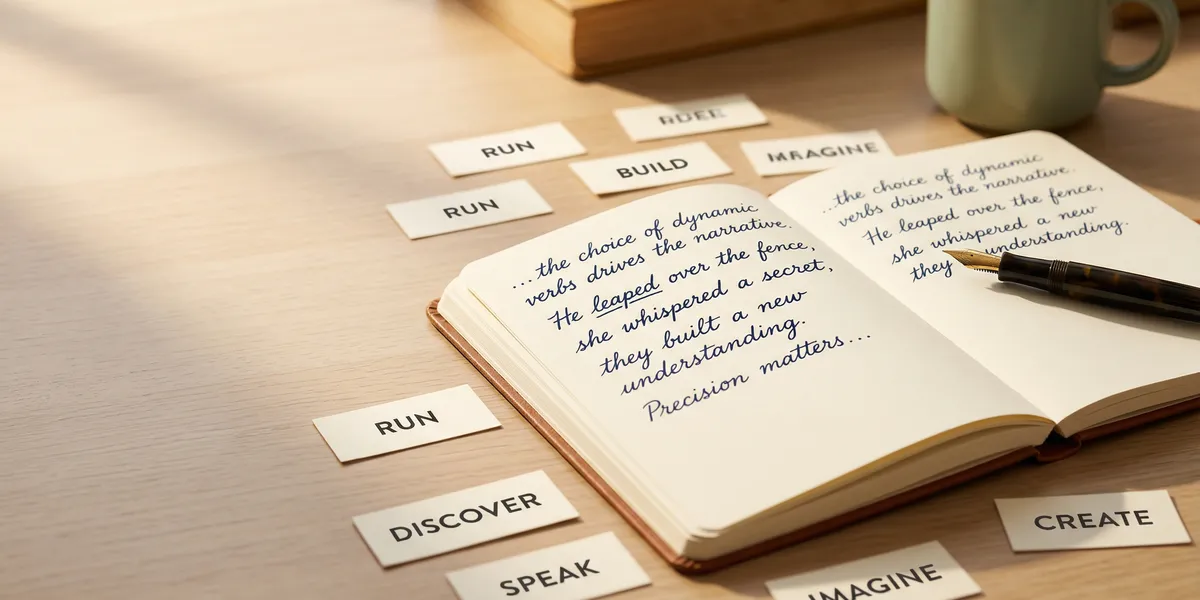 RUN
BUILD
RUN
...the choice of dynamic
verbs drives the narrative.
He leaped over the fence,
she whispered a secret,
they built a new
understanding.
Precision matters...
...the choice of dynamic
verbs drives the narrative.
He leaped over the fence,
she whispered a new
they understanding.
RUN
DISCOVER
SPEAK
CREATE
IMAGINE